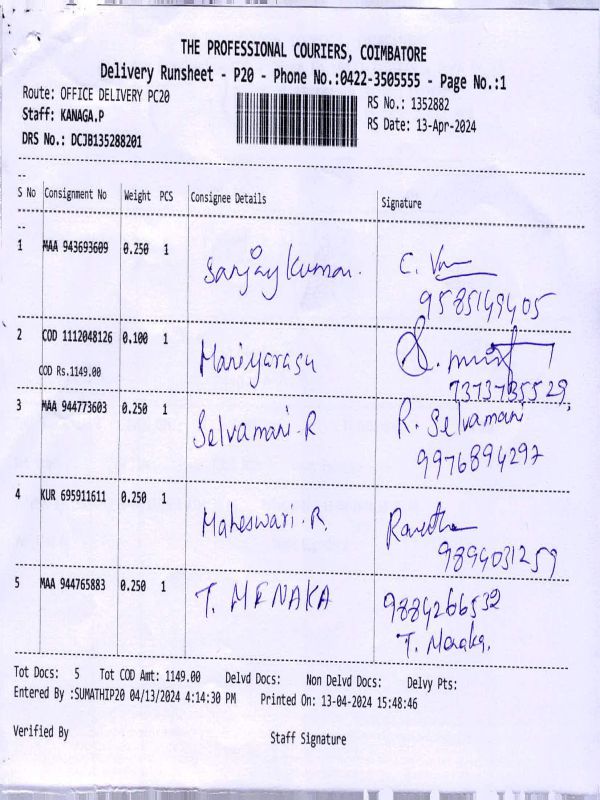 THE PROFESSIONAL COURIERS, COIMBATORE
Delivery Runsheet - P20 - Phone No.:0422-3505555 - Page No.:1
Route: OFFICE DELIVERY PC20 RS No.: 1352882
Staff: KANAGA.P RS Date: 13-Apr-2024
DRS No.: DCJB135288201
S No Consignment No Weight PCS Consignee Details Signature
1 MAA 943693609 0.250 1 Sanjay Kumar. C.
9585149405
2 COD 1112048126 0.100 1 Mariyarasu
COD Rs.1149.00 7373735529
3 MAA 944773603 0.250 1 Selvamani.R R. Selvamani
9976894297
4 KUR 695911611 0.250 1 Maheswari.R.
9894031259
5 MAA 944765883 0.250 1 T. MENAKA 9884266532
T. Menaka.
Tot Docs: 5 Tot COD Amt: 1149.00 Delvd Docs: Non Delvd Docs: Delvy Pts:
Entered By :SUMATHIP20 04/13/2024 4:14:30 PM Printed On: 13-04-2024 15:48:46
Verified By Staff Signature